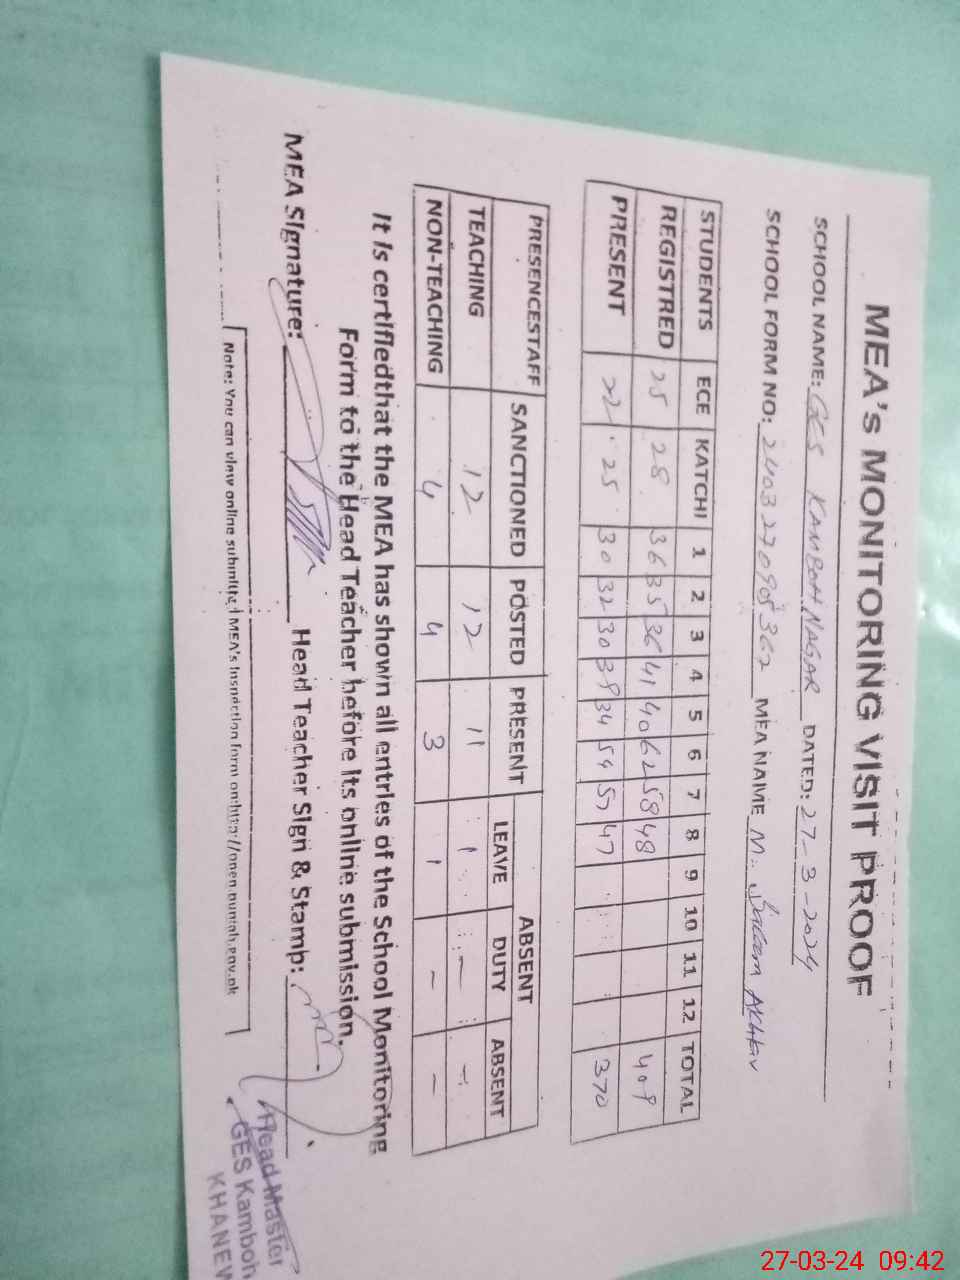 MEA's MONITORING VISIT PROOF
SCHOOL NAME: GES KAMBOH NAGAR DATED: 27-3-2024
SCHOOL FORM NO: 2403270908362 MEA NAME M. Saleem Akhtar
STUDENTS ECE KATCHI 1 2 3 4 5 6 7 8 9 10 11 12 TOTAL
REGISTRED 25 28 36 35 36 41 40 62 58 48 409
PRESENT 22 25 30 32 30 39 34 54 57 47 370
PRESENCESTAFF SANCTIONED POSTED PRESENT ABSENT
LEAVE DUTY ABSENT
TEACHING 12 12 11 1 - -
NON-TEACHING 4 4 3 1 - -
It is certifiedthat the MEA has shown all entries of the School Monitoring
Form to the Head Teacher before its online submission.
MEA Signature: Head Teacher Sign & Stamp:
Head Master
GES Kamboh
KHANEW
Note: You can view online submitted MEA's Inspection form on:http://open.punjab.gov.pk
27-03-24 09:42